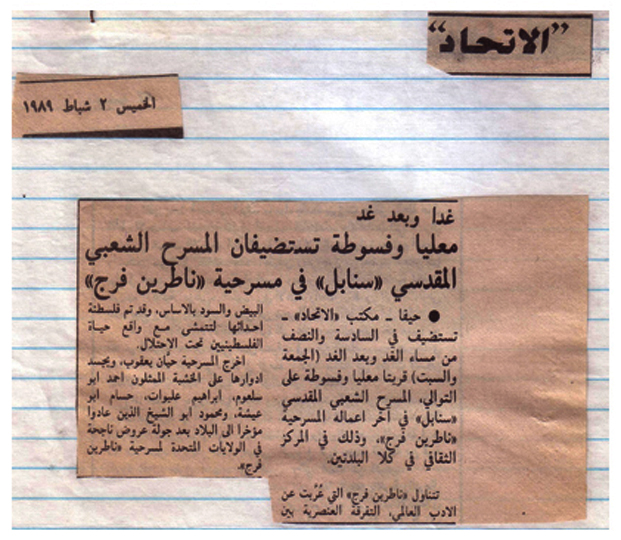 ”الاتحاد“
الخميس ٢ شباط ١٩٨٩
غدا وبعد غد
معليا وفسوطة تستضيفان المسرح الشعبي
المقدسي «سنابل» في مسرحية «ناطرين فرج»
● حيفا ــ مكتب «الاتحاد» ــ
تستضيف في السادسة والنصف
من مساء الغد وبعد الغد (الجمعة
والسبت) قريتا معليا وفسوطة على
التوالي، المسرح الشعبي المقدسي
«سنابل» في آخر اعماله المسرحية
«ناطرين فرج»، وذلك في المركز
الثقافي في كلا البلدتين.
تتناول «ناطرين فرج» التي عُرّبت عن
الادب العالمي، التفرقة العنصرية بين
البيض والسود بالاساس، وقد تم فلسطنة
احداثها لتتمشى مع واقع حياة
الفلسطينيين تحت الاحتلال.
اخرج المسرحية حيان يعقوب، ويجسد
ادوارها على الخشبة الممثلون احمد ابو
سلعوم، ابراهيم عليوات، حسام ابو
عيشة، ومحمود ابو الشيخ الذين عادوا
مؤخرا الى البلاد بعد جولة عروض ناجحة
في الولايات المتحدة لمسرحية «ناطرين
فرج».